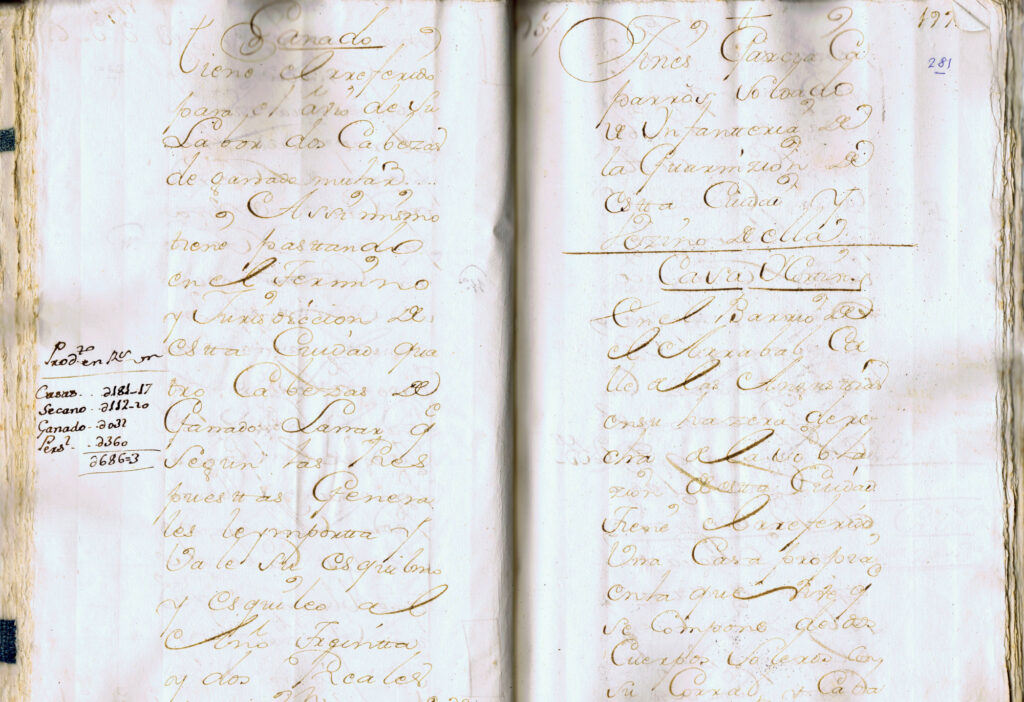 Ganado
tiene el rreferido
para el uso de su
Labor dos Cabezas
de ganado mular
Assi mismo
tiene pastando
en el Termino
y Jurisdiccion de
estta Ciudad qua
tro Cabezas de
Ganado Lanar q
segun las Res
puesttas Genera
les le ymportta y
Vale su esquilmo
y esquileo al
Año Treintta
y dos Reales
Prodto en Rs vn
Casas .. 2181-17
Secano . 2112-20
Ganado . 2032
Persl . 2360
2686=3
281
Jines Garcia Ca
parros Soldado
de Infantteria de
la Guarnizion de
estta Ciudad y
Vezino de ella
Casa
En el Barrio de
el Arrabal Ca
lle de las Angustias
en su hazera dere
cha de la Pobla
zion de estta Ciudad
Tiene el rreferido
Una Casa propia
en la que Vive q
se Compone de dos
Cuerpos
su Corral y Cada